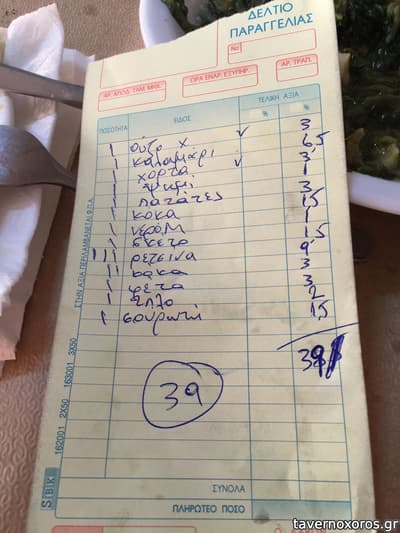 ΔΕΛΤΙΟ
ΠΑΡΑΓΓΕΛΙΑΣ
No
ΑΡ. ΑΠΟΔ. ΤΑΜ. ΜΗΧ.
ΩΡΑ ΕΝΑΡ. ΕΞΥΠΗΡ.
ΑΡ. ΤΡΑΠ.
ΠΟΣΟΤΗΤΑ ΕΙΔΟΣ ΤΕΛΙΚΗ ΑΞΙΑ
% %
1 ούζο χ 3
1 καλαμαρι 6,5
1 χορτα 3
1 ψωμι 1
1 πατατες 3
1 κοκα 1,5
1 νερο 1
1 σκετο 1,5
111 ρετσινα 9
11 κοκα 3
1 φετα 3
1 2
1 σουρωτή 1,5
39
39
ΣΥΝΟΛΑ
ΠΛΗΡΩΤΕΟ ΠΟΣΟ
ΣΤΗΝ ΑΞΙΑ ΠΕΡΙΛΑΜΒΑΝΕΤΑΙ Φ.Π.Α.
162001 2X50 162001 3X50
SBK
tavernoxoros.gr